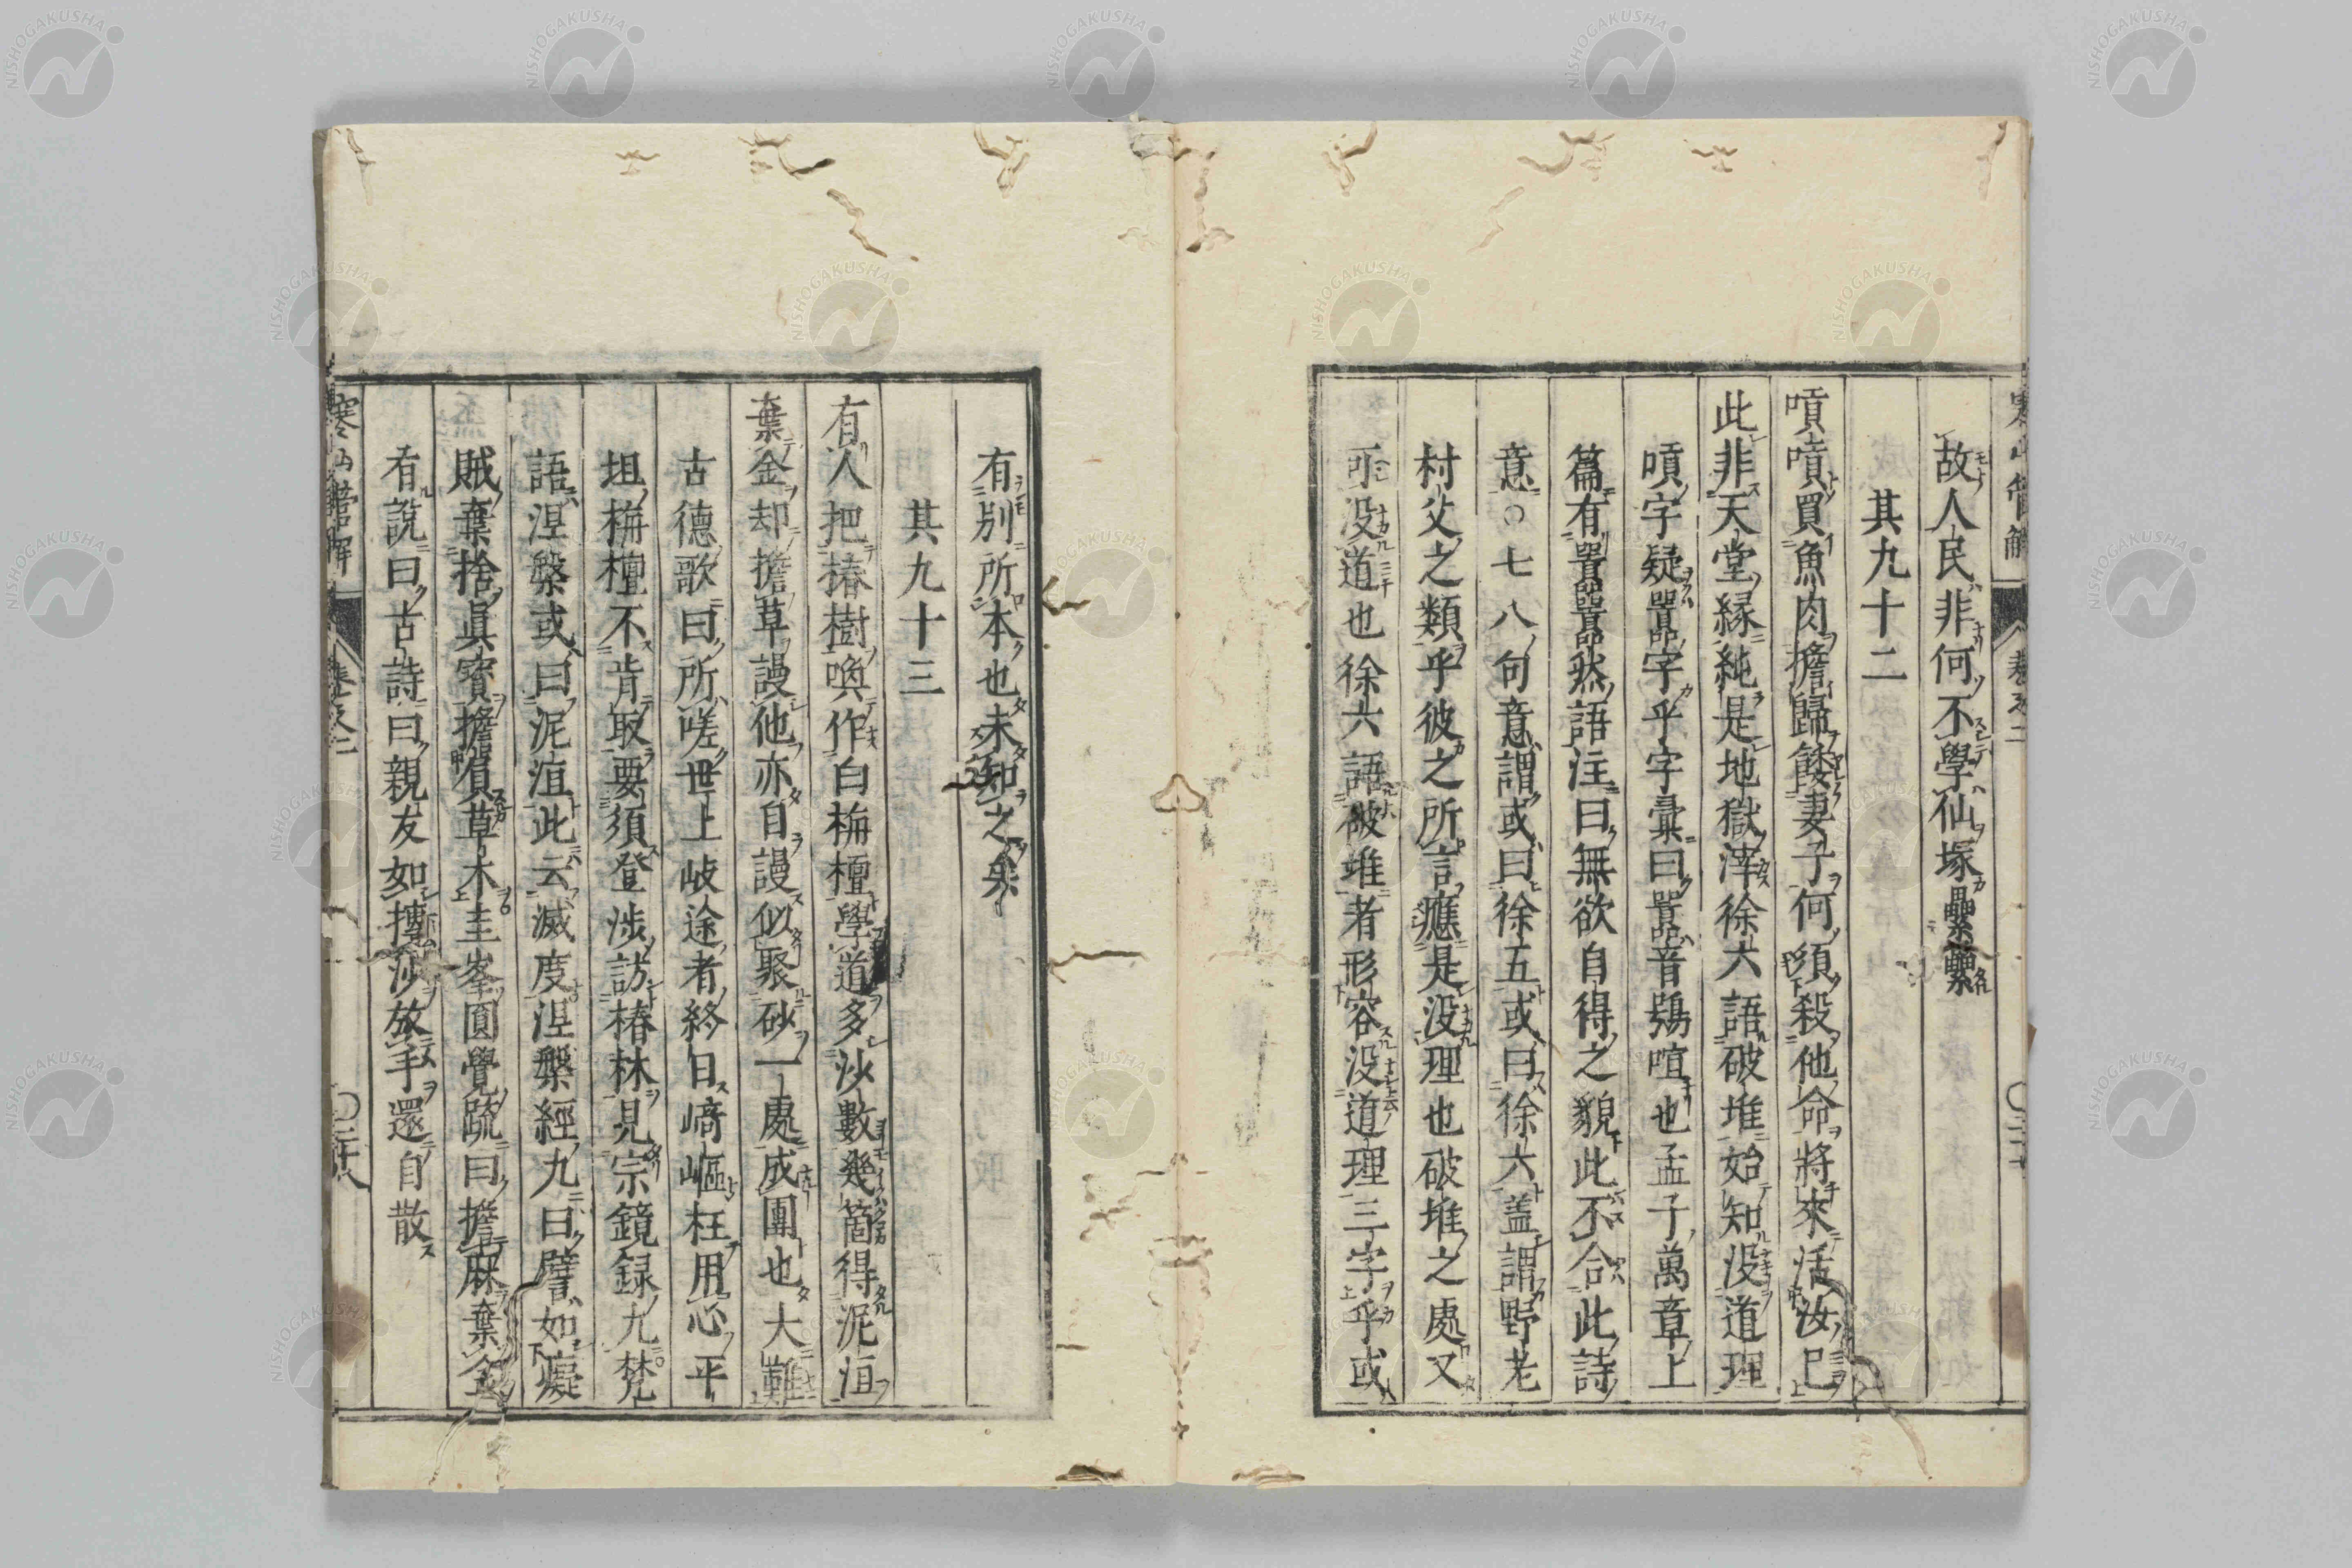 故人民非何不學仙塚纍纍
其九十二
嘖嘖買魚肉擔歸餧妻子何須殺他命將來活汝已
此非天堂縁純是地獄滓徐六語破堆始知没道理
嘖字疑嚚字乎字彙曰嚚音鴞喧也孟子萬章上
篇有嚚嚚然語注曰無欲自得之貌此不合此詩
意○七八句意謂或曰徐五或曰徐六盖謂野老
村父之類乎彼之所言應是没理也破堆之處又
可没道也徐六語破堆者形容没道理三字乎或
有別所本也未知之矣
其九十三
有人把椿樹喚作白栴檀學道多沙數幾箇得泥洹
棄金却擔草謾他亦自謾似聚砂一處成團也大難
古德歌曰所嗟世上岐途者終日崎嶇枉用心平
坦栴檀不肯取要須登涉訪椿林見宗鏡録九梵
語涅槃或曰泥洹此云滅度涅槃經九曰譬如癡
賊棄捨眞寳擔負草木圭峯圓覺疏曰擔麻棄金
有說曰古詩曰親友如摶沙放手還自散
寒山詩管解
巻之二
NISHOGAKUSHA